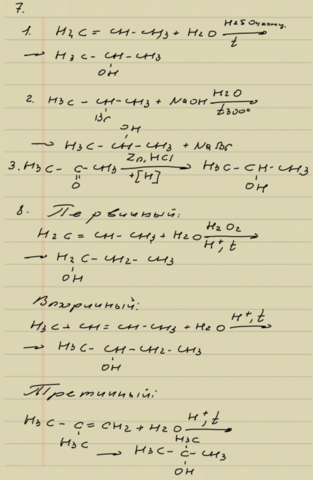 7.
1. H2C = CH-CH3 + H2O H2SO4 конц. t
→ H3C - CH-CH3
OH
2. H3C - CH-CH3 + NaOH H2O t300°
Br
OH
→ H3C - CH-CH3 + NaBr
3. H3C - C-CH3 Zn, HCl +[H] H3C - CH-CH3
O OH
8. Первичный:
H2C = CH-CH3 + H2O H2O2 H+, t
→ H2C - CH2-CH3
OH
Вторичный:
H3C - CH = CH-CH3 + H2O H+, t
→ H3C - CH-CH2-CH3
OH
Третичный:
H3C - C = CH2 + H2O H+, t
H3C H3C
→ H3C - C-CH3
OH